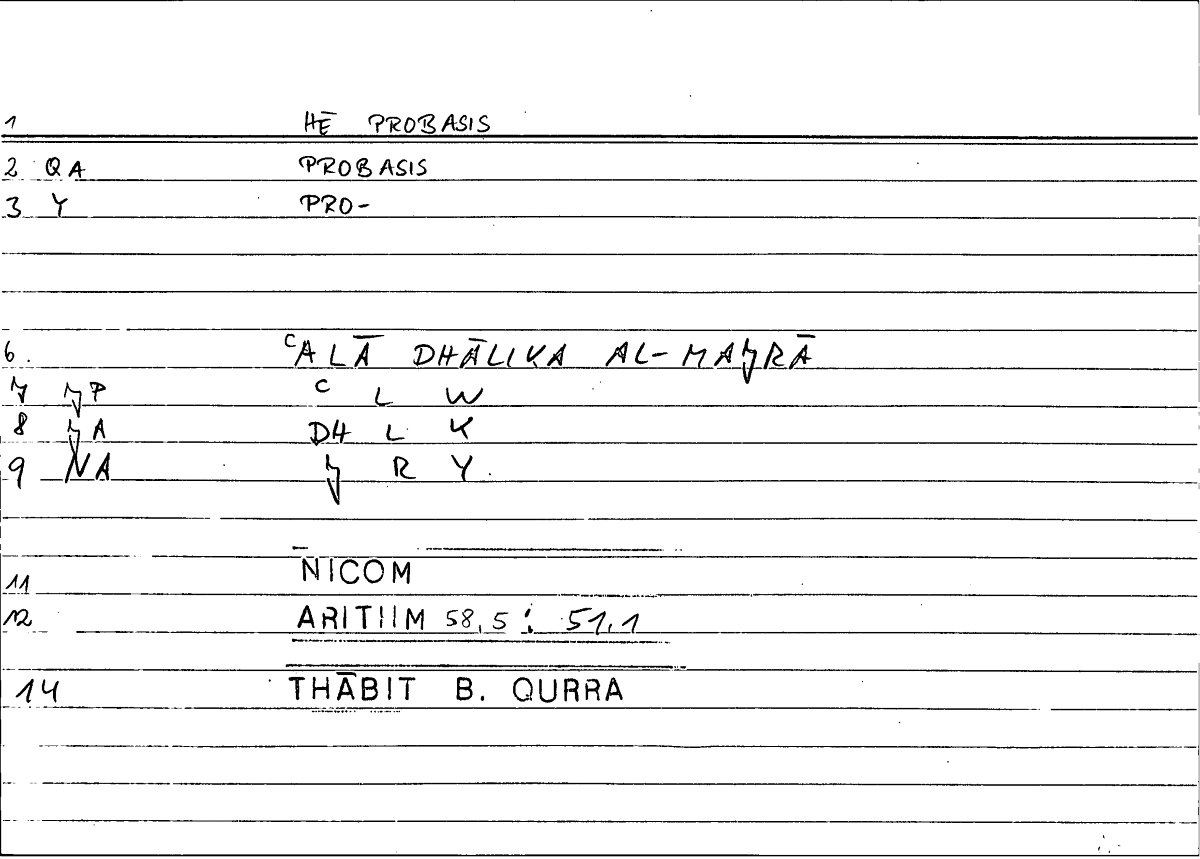 1 HĒ PROBASIS
2 QA PROBASIS
3 Y PRO-
6. ʿALĀ DHĀLIKA AL-MAJRĀ
7 JP ʿ L W
8 JA DH L K
9 NA J R Y
11 NICOM
12 ARITHM 58,5 : 51,1
14 THĀBIT B. QURRA